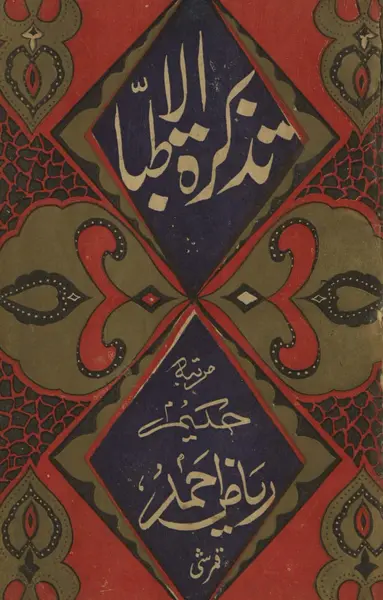 تذکرۃ الاطبّا
مرتبہ
حکیم
ریاض احمد
قمرشی